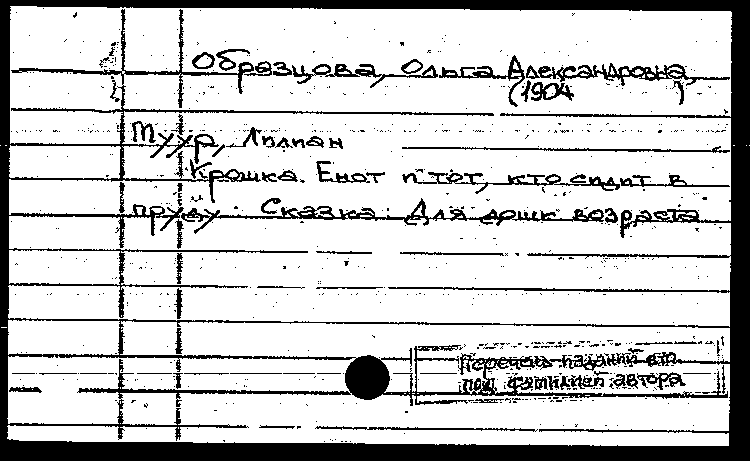 Образцова, Ольга Александровна,
(1904 )
Туур, Лилиан
Крошка. Енот и тот, кто сидит в
пруду : Сказка : Для дошк возраста
Перечень изданий см.
под фамилией автора